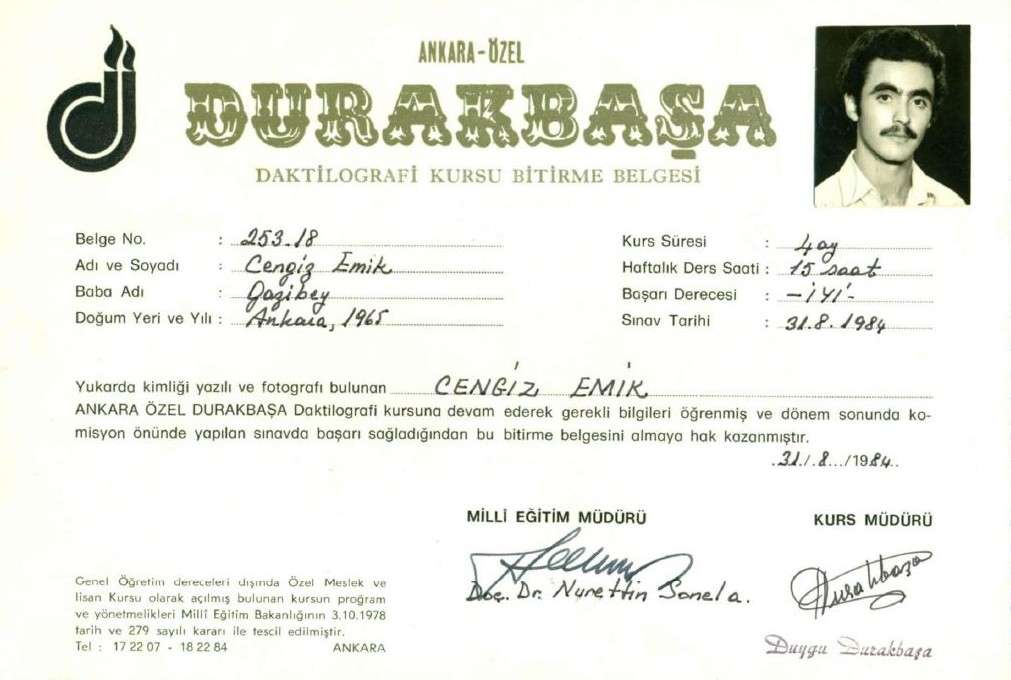 ANKARA-ÖZEL
DURAKBAŞA
DAKTİLOGRAFİ KURSU BİTİRME BELGESİ
Belge No. : 253.18
Adı ve Soyadı : Cengiz Emik
Baba Adı : Gazibey
Doğum Yeri ve Yılı : Ankara, 1965
Kurs Süresi : 4 ay
Haftalık Ders Saati : 15 saat
Başarı Derecesi : -İYİ-
Sınav Tarihi : 31.8.1984
Yukarda kimliği yazılı ve fotografı bulunan CENGİZ EMİK
ANKARA ÖZEL DURAKBAŞA Daktilografi kursuna devam ederek gerekli bilgileri öğrenmiş ve dönem sonunda ko-
misyon önünde yapılan sınavda başarı sağladığından bu bitirme belgesini almaya hak kazanmıştır.
31/8/1984
MİLLÎ EĞİTİM MÜDÜRÜ
Doç. Dr. Nurettin Sonela.
KURS MÜDÜRÜ
Durakbaşa
Duygu Durakbaşa
Genel Öğretim dereceleri dışında Özel Meslek ve
lisan Kursu olarak açılmış bulunan kursun program
ve yönetmelikleri Millî Eğitim Bakanlığının 3.10.1978
tarih ve 279 sayılı kararı ile tescil edilmiştir.
Tel : 17 22 07 - 18 22 84 ANKARA